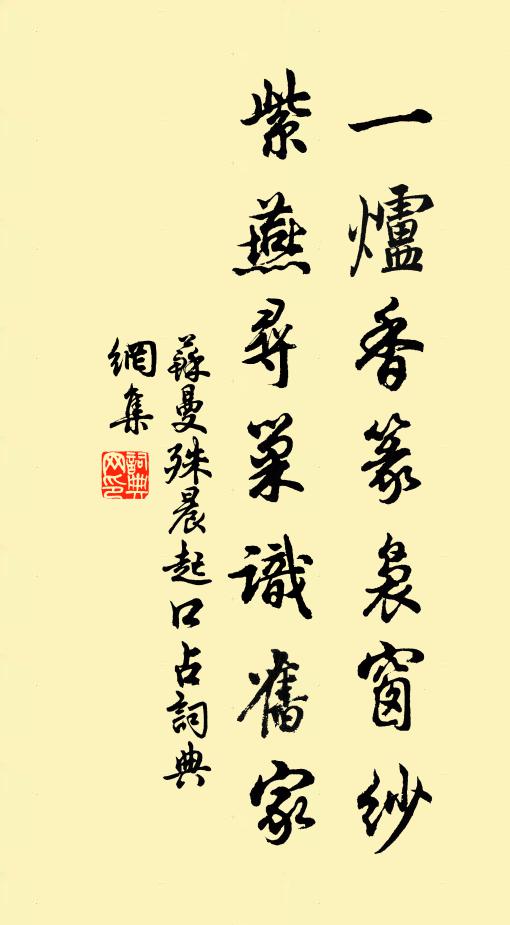 一爐香篆裊窗紗
紫燕尋巢識舊家
蘇曼殊晨起口占詞典
網集
詞典網印